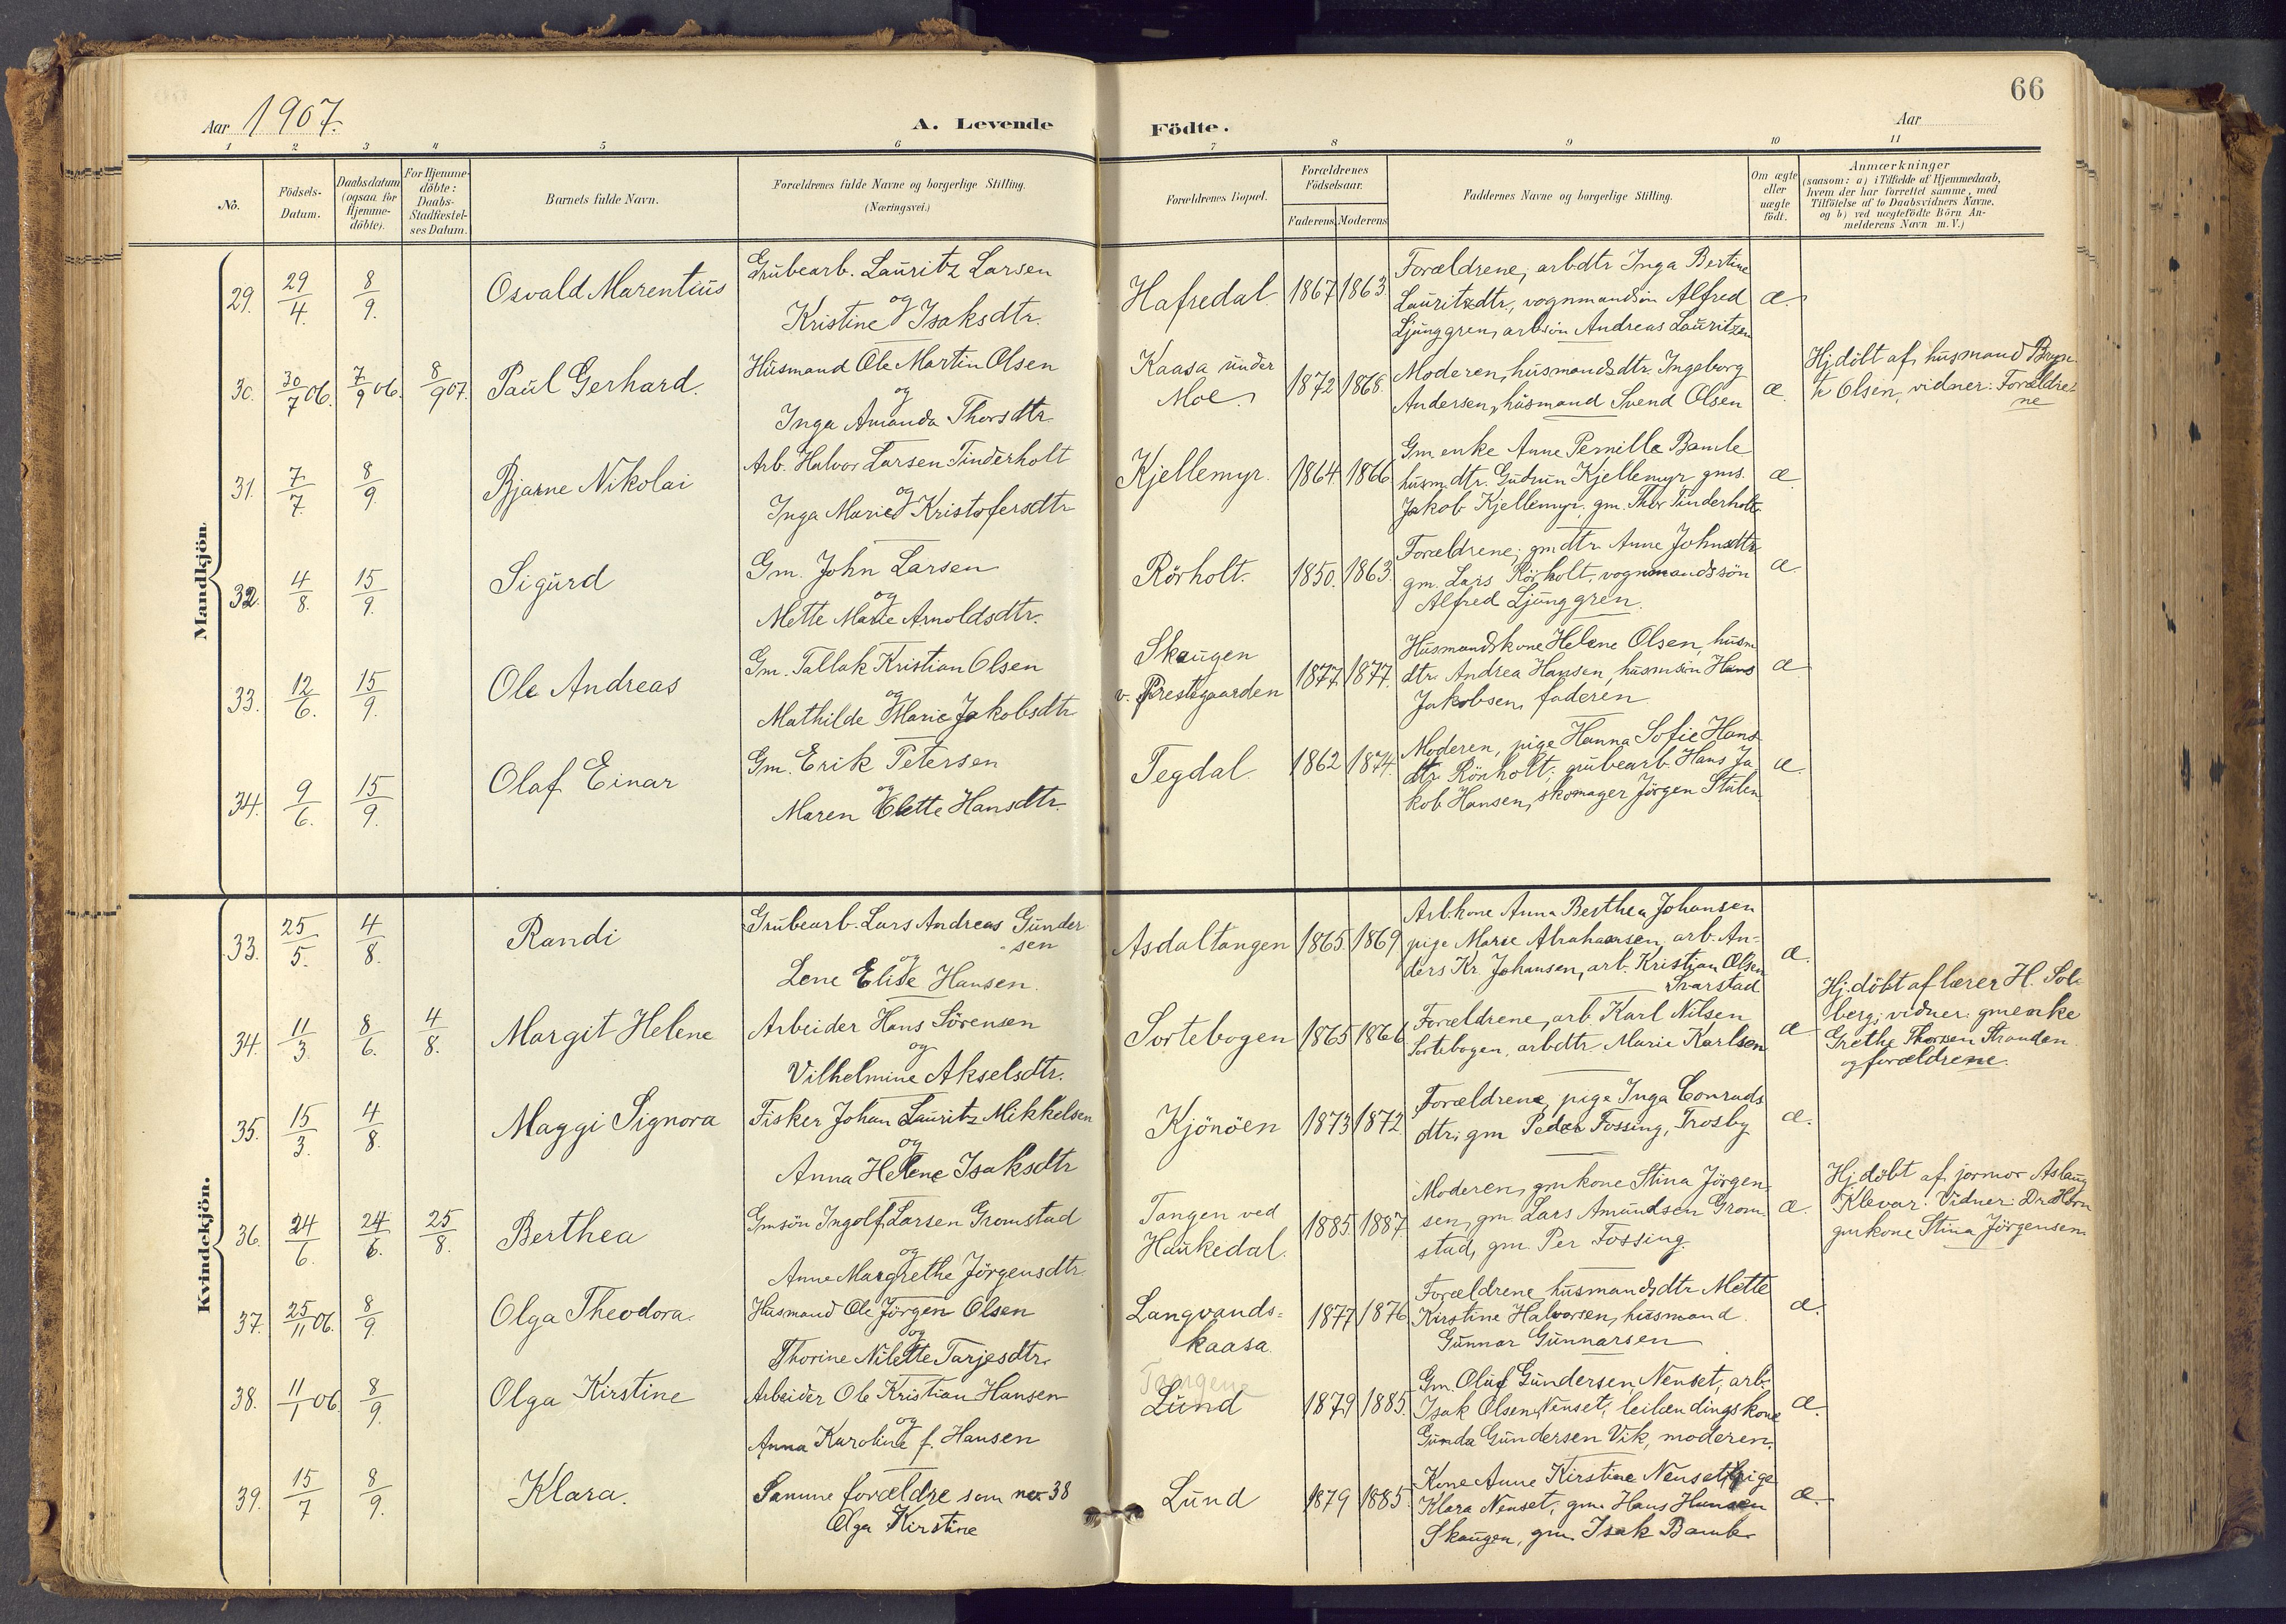 66
Aar 1907.
A. Levende
Födte.
Aar
1 2 3 4 5 6 7 8 9 10 11
No.
Födsels-
Datum.
Daabsdatum
(ogsaa for
Hjemme-
döbte).
For Hjemme-
döbte:
Daabs-
Stadfæstel-
ses Datum.
Barnets fulde Navn.
Forældrenes fulde Navne og borgerlige Stilling.
(Næringsvei.)
Forældrenes Bopæl.
Forældrenes
Födselsaar.
Faderens. Moderens.
Faddernes Navne og borgerlige Stilling.
Om ægte
eller
uægte
födt.
Anmærkninger
(saasom: a) i Tilfælde af Hjemmedaab,
hvem der har forrettet samme, med
Tilföielse af to Daabsvidners Navne,
og b) ved uægtefödte Börn An-
melderens Navn m. V.)
Mandkjön.
29. 29/4. 8/9. Osvald Marentius
Grubearb. Lauritz Larsen
og
Kristine Isaksdtr.
Hafredal 1867 1863.
Forældrene, arbdtr Inga Bertine
Lauritzdtr, vognmandsön Alfred
Ljunggren, arbsön Andreas Lauritzen
æ.
30. 30/7 06. 7/9 06. 8/9 07. Paul Gerhard.
Husmand Ole Martin Olsen
og
Inga Amanda Thorsdtr.
Kaasa under
Moe. 1872 1868.
Moderen, husmandsdtr. Ingeborg
Andersen, husmand Svend Olsen
æ.
Hj.döbt af husmand
Olsen, vidner: Forældre-
ne
31. 7/7. 8/9. Bjarne Nikolai
Arb. Halvor Larsen Tinderholt
og
Inga Marie Kristofersdtr
Kjellemyr. 1864 1866
Gm enke Anne Pernille Bamle
husm.dtr. Gudrun Kjellemyr gms.
Jakob Kjellemyr, gm. Thor Tinderholt.
æ.
32. 4/8. 15/9. Sigurd
Gm. John Larsen
og
Mette Marie Arnoldsdtr.
Rörholt. 1850. 1863.
Forældrene, gmdtr. Anne Johnsdtr
gm. Lars Rörholt, vognmandssön
Alfred Ljunggren.
æ.
33. 12/6. 15/9. Ole Andreas
Gm. Tallak Kristian Olsen
og
Mathilde Marie Jakobsdtr
Skaugen
v. Prestegaarden 1877. 1877.
Husmandskone Helene Olsen, husm
dtr. Andrea Hansen, husmsön Hans
Jakobsen, faderen
æ
34. 9/6. 15/9. Olaf Einar
Gm. Erik Petersen
og
Maren Elette Hansdtr.
Tegdal 1862 1874.
Moderen, pige Hanna Sofie Hans
dtr Rörholt, grubearb. Hans Ja
kob Hansen, skomager Jörgen Stulen
æ.
Kvindekjön.
33. 25/5. 4/8. Randi
Grubearb. Lars Andreas Gunder
sen
og
Lene Elise Hansen.
Asdaltangen 1865. 1869
Arb.kone Anna Berthea Johansen
pige Marie Abrahamsen, arb. An-
ders Kr. Johansen, arb. Kristian Olsen
Svarstad
æ.
34. 11/3. 8/6. 4/8. Margit Helene
Arbeider Hans Sörensen
og
Vilhelmine Akselsdtr.
Sortebogen 1865 1866
Forældrene, arb. Karl Nilsen
Sortebogen, arbdtr Marie Karlsen
æ
Hj.döbt af lærer H. Sol-
berg, vidner: gmenke
Grethe Thorsen Stranden
og forældrene.
35. 15/3. 4/8. Maggi Signora
Fisker Johan Lauritz Mikkelsen
og
Anna Helene Isaksdtr
Kjönöen 1873 1872
Forældrene, pige Inga Conrads
dtr, gm Peder Fossing, Trosby
æ.
36. 24/6. 24/6. 25/8. Berthea
Gmsön Ingolf Larsen Gromstad
og
Anne Margrethe Jörgensdtr.
Tangen ved
Haukedal. 1885. 1887.
Moderen, gmkone Stina Jörgen
sen, gm. Lars Amundsen Grom
stad, gm. Per Fossing.
æ.
Hj.döbt af jormor Aslaug
Klevar. Vidner: Dr. Horn
gmkone Stina Jörgensen.
37. 25/11 06. 8/9. Olga Theodora.
Husmand Ole Jörgen Olsen
og
Thorine Nilette Tarjesdtr.
Langvands-
kaasa. 1877 1876
Forældrene, husmandsdtr Mette
Kirstine Halvorsen, husmand
Gunnar Gunnarsen
æ.
38. 11/1 06. 8/9. Olga Kirstine
Arbeider Ole Kristian Hansen
og
Anna Karoline f. Hansen
Lund 1879 1885.
Gm. Oluf Gundersen Nenset, arb.
Isak Olsen Nenset, leilændingskone
Gunda Gundersen Vik, moderen.
æ.
39. 15/7 8/9. Klara.
Samme forældre som nr 38
Olga Kirstine
Lund 1879 1885.
Kone Anne Kirstine Nenset, pige
Klara Nenset, gm. Hans Hansen
Skaugen, gm Isak Bamle
æ.